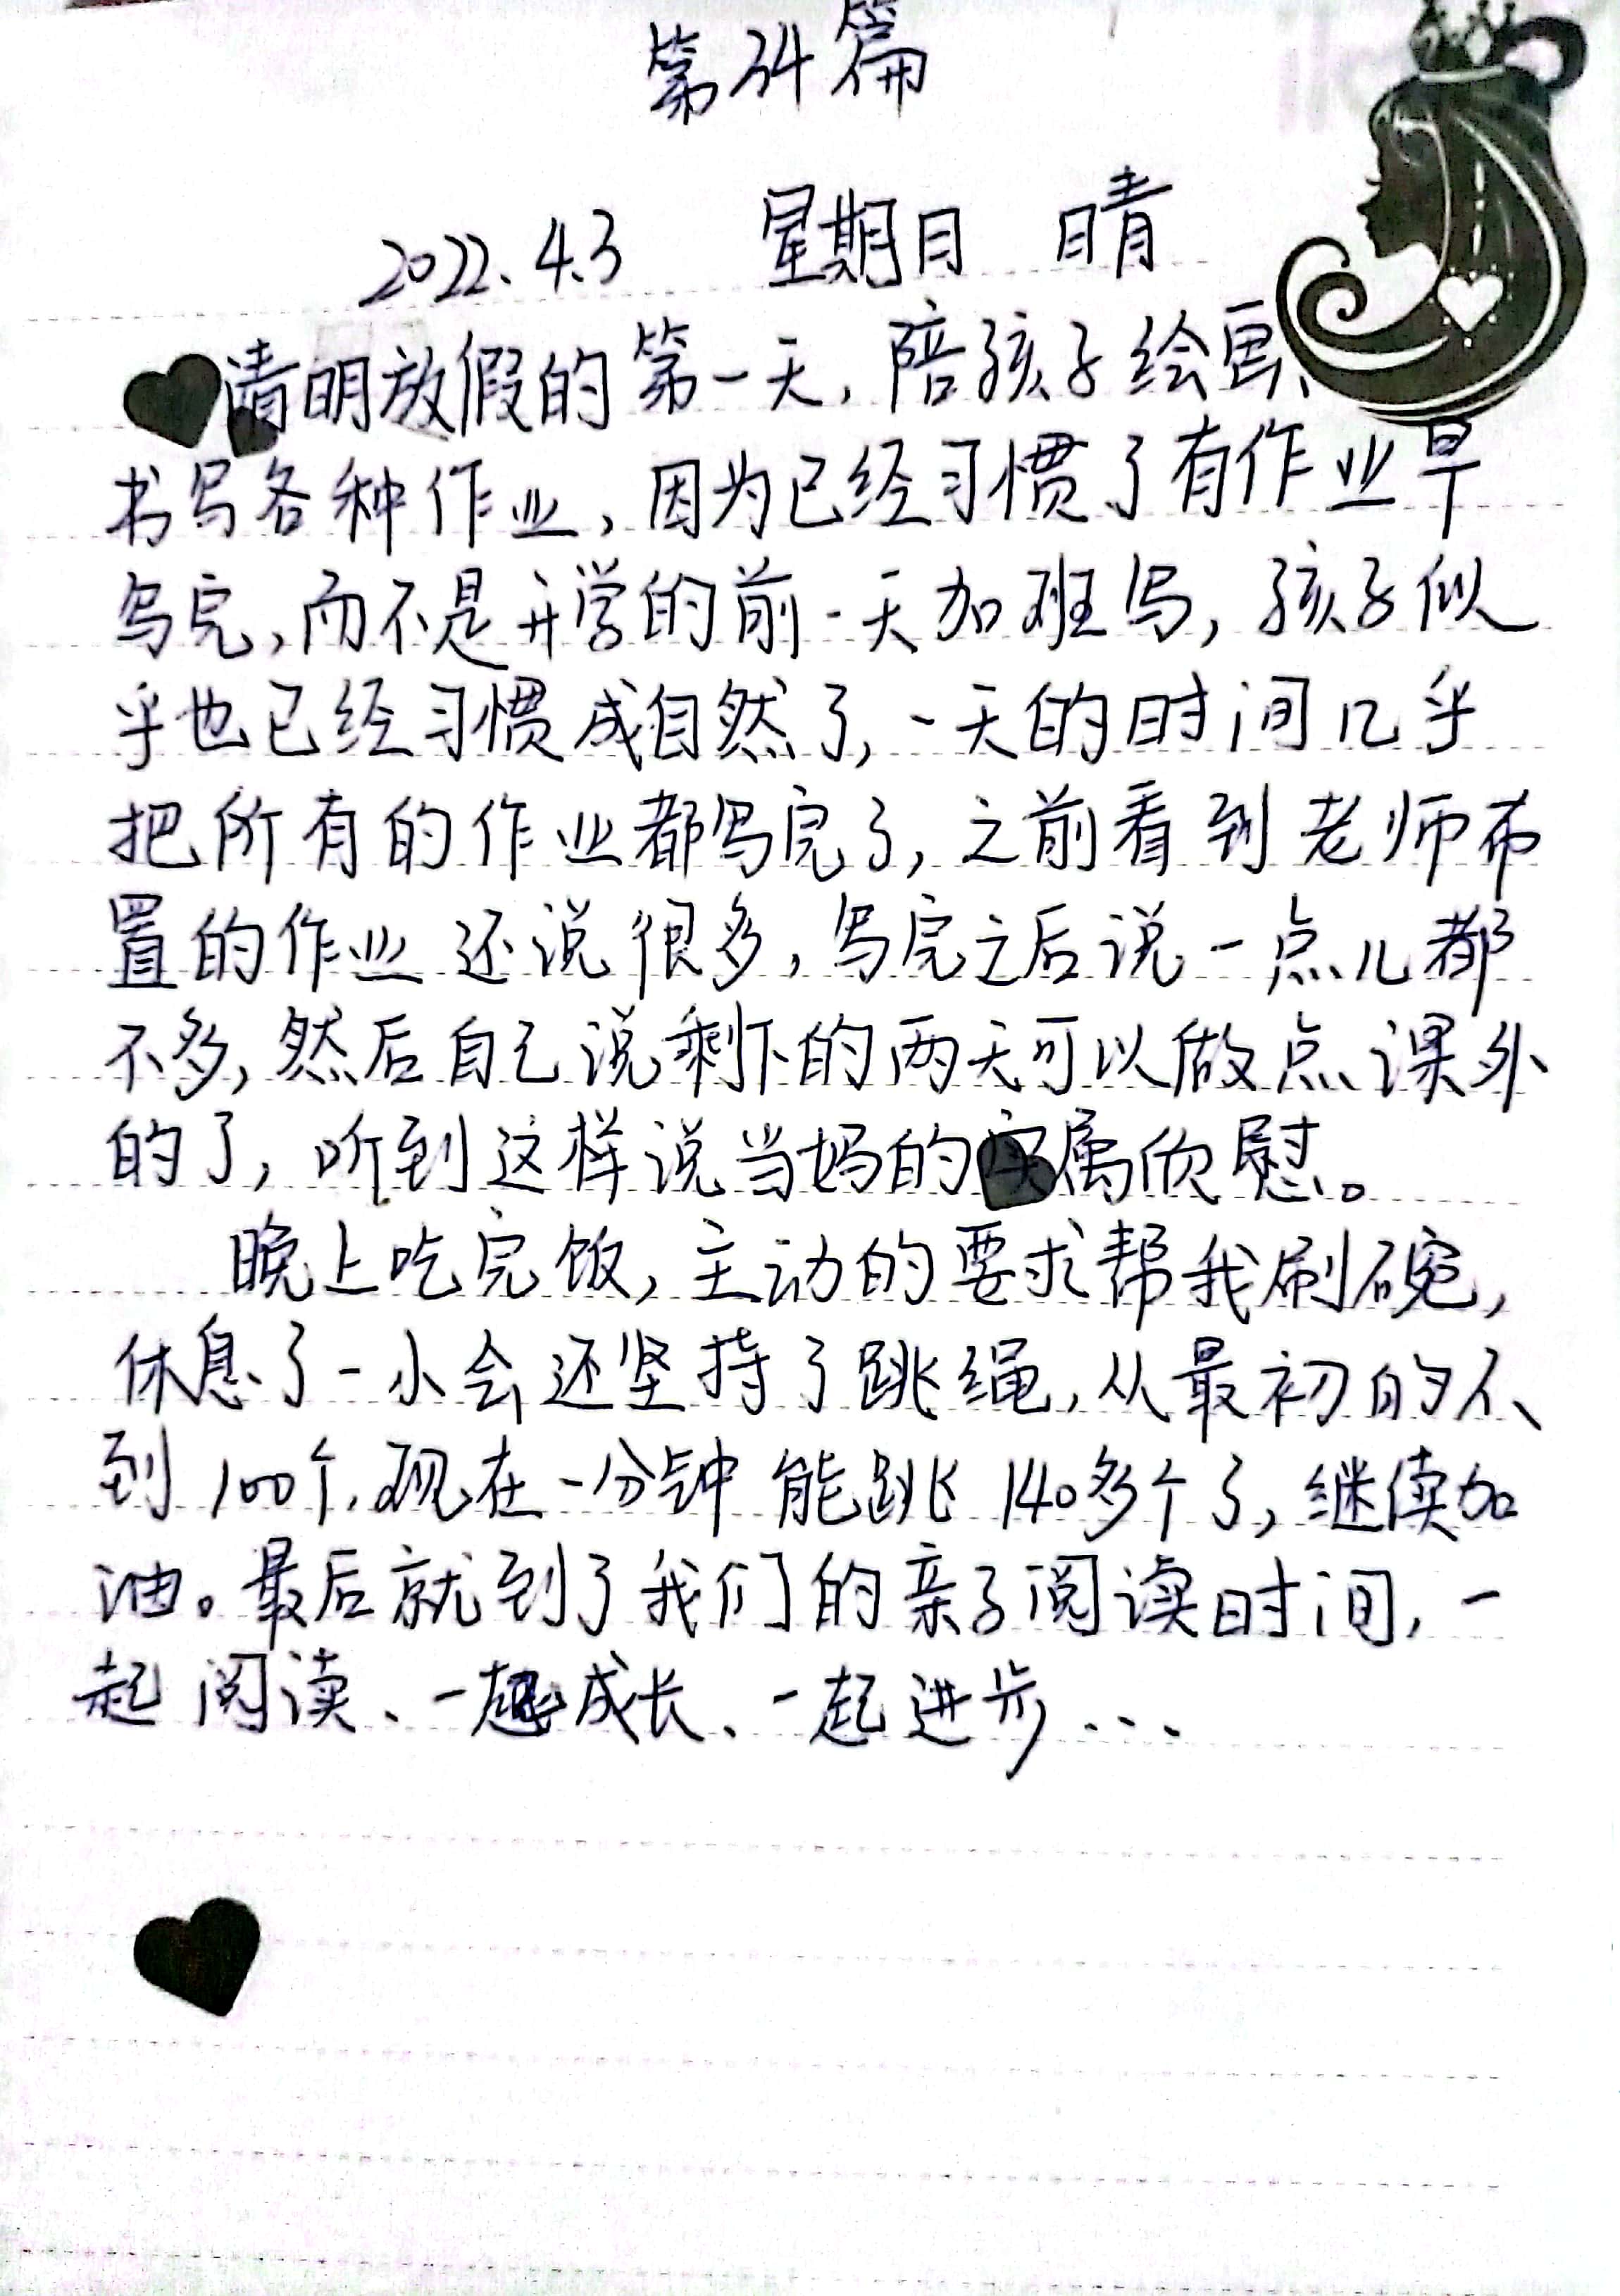 第34篇
2022.4.3 星期日 晴
清明放假的第一天,陪孩子绘画、
书写各种作业,因为已经习惯了有作业早
写完,而不是开学的前一天加班写,孩子似
乎也已经习惯成自然了,一天的时间几乎
把所有的作业都写完了,之前看到老师布
置的作业还说很多,写完之后说一点儿都
不多,然后自己说剩下的两天可以做点课外
的了,听到这样说当妈的实属欣慰。
晚上吃完饭,主动的要求帮我刷碗,
休息了一小会还坚持了跳绳,从最初的不
到100个,现在一分钟能跳140多个了,继续加
油。最后就到了我们的亲子阅读时间,一
起阅读、一起成长、一起进步...